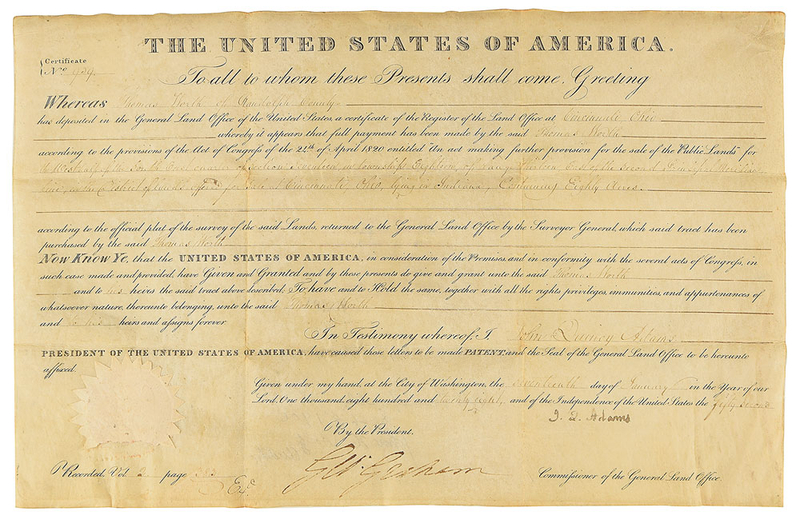 THE UNITED STATES OF AMERICA.
Certificate
No.
To all to whom these Presents shall come, Greeting
Whereas Thomas North of Randolph County
has deposited in the General Land Office of the United States, a certificate of the Register of the Land Office at Cincinnati Ohio
whereby it appears that full payment has been made by the said Thomas North
according to the provisions of the Act of Congress of the 24th of April 1820 entitled An act making further provision for the sale of the Public Lands for
the West half of the quarter of section Seventeen in township Eighteen of range
of lands offered for sale at Cincinnati Ohio, lying in Indiana, Containing Eighty Acres.
according to the official plat of the survey of the said Lands, returned to the General Land Office by the Surveyor General, which said tract has been
purchased by the said Thomas North
Now Know Ye, that the UNITED STATES OF AMERICA, in consideration of the Premises, and in conformity with the several acts of Congress, in
such case made and provided, have Given and Granted and by these presents do give and grant unto the said Thomas North
and to his heirs the said tract above described; To have and to Hold the same, together with all the rights, privileges, immunities, and appurtenances of
whatsoever nature, thereunto belonging, unto the said Thomas North
and to his heirs and assigns forever.
In Testimony whereof, I John Quincy Adams
PRESIDENT OF THE UNITED STATES OF AMERICA, have caused these letters to be made PATENT, and the Seal of the General Land Office to be hereunto
affixed.
Given under my hand, at the City of Washington, the day of January in the Year of our
Lord, One thousand, eight hundred and twenty eight, and of the Independence of the United States the fifty second
J. Q. Adams
By the President.
Recorded, Vol. page
Commissioner of the General Land Office